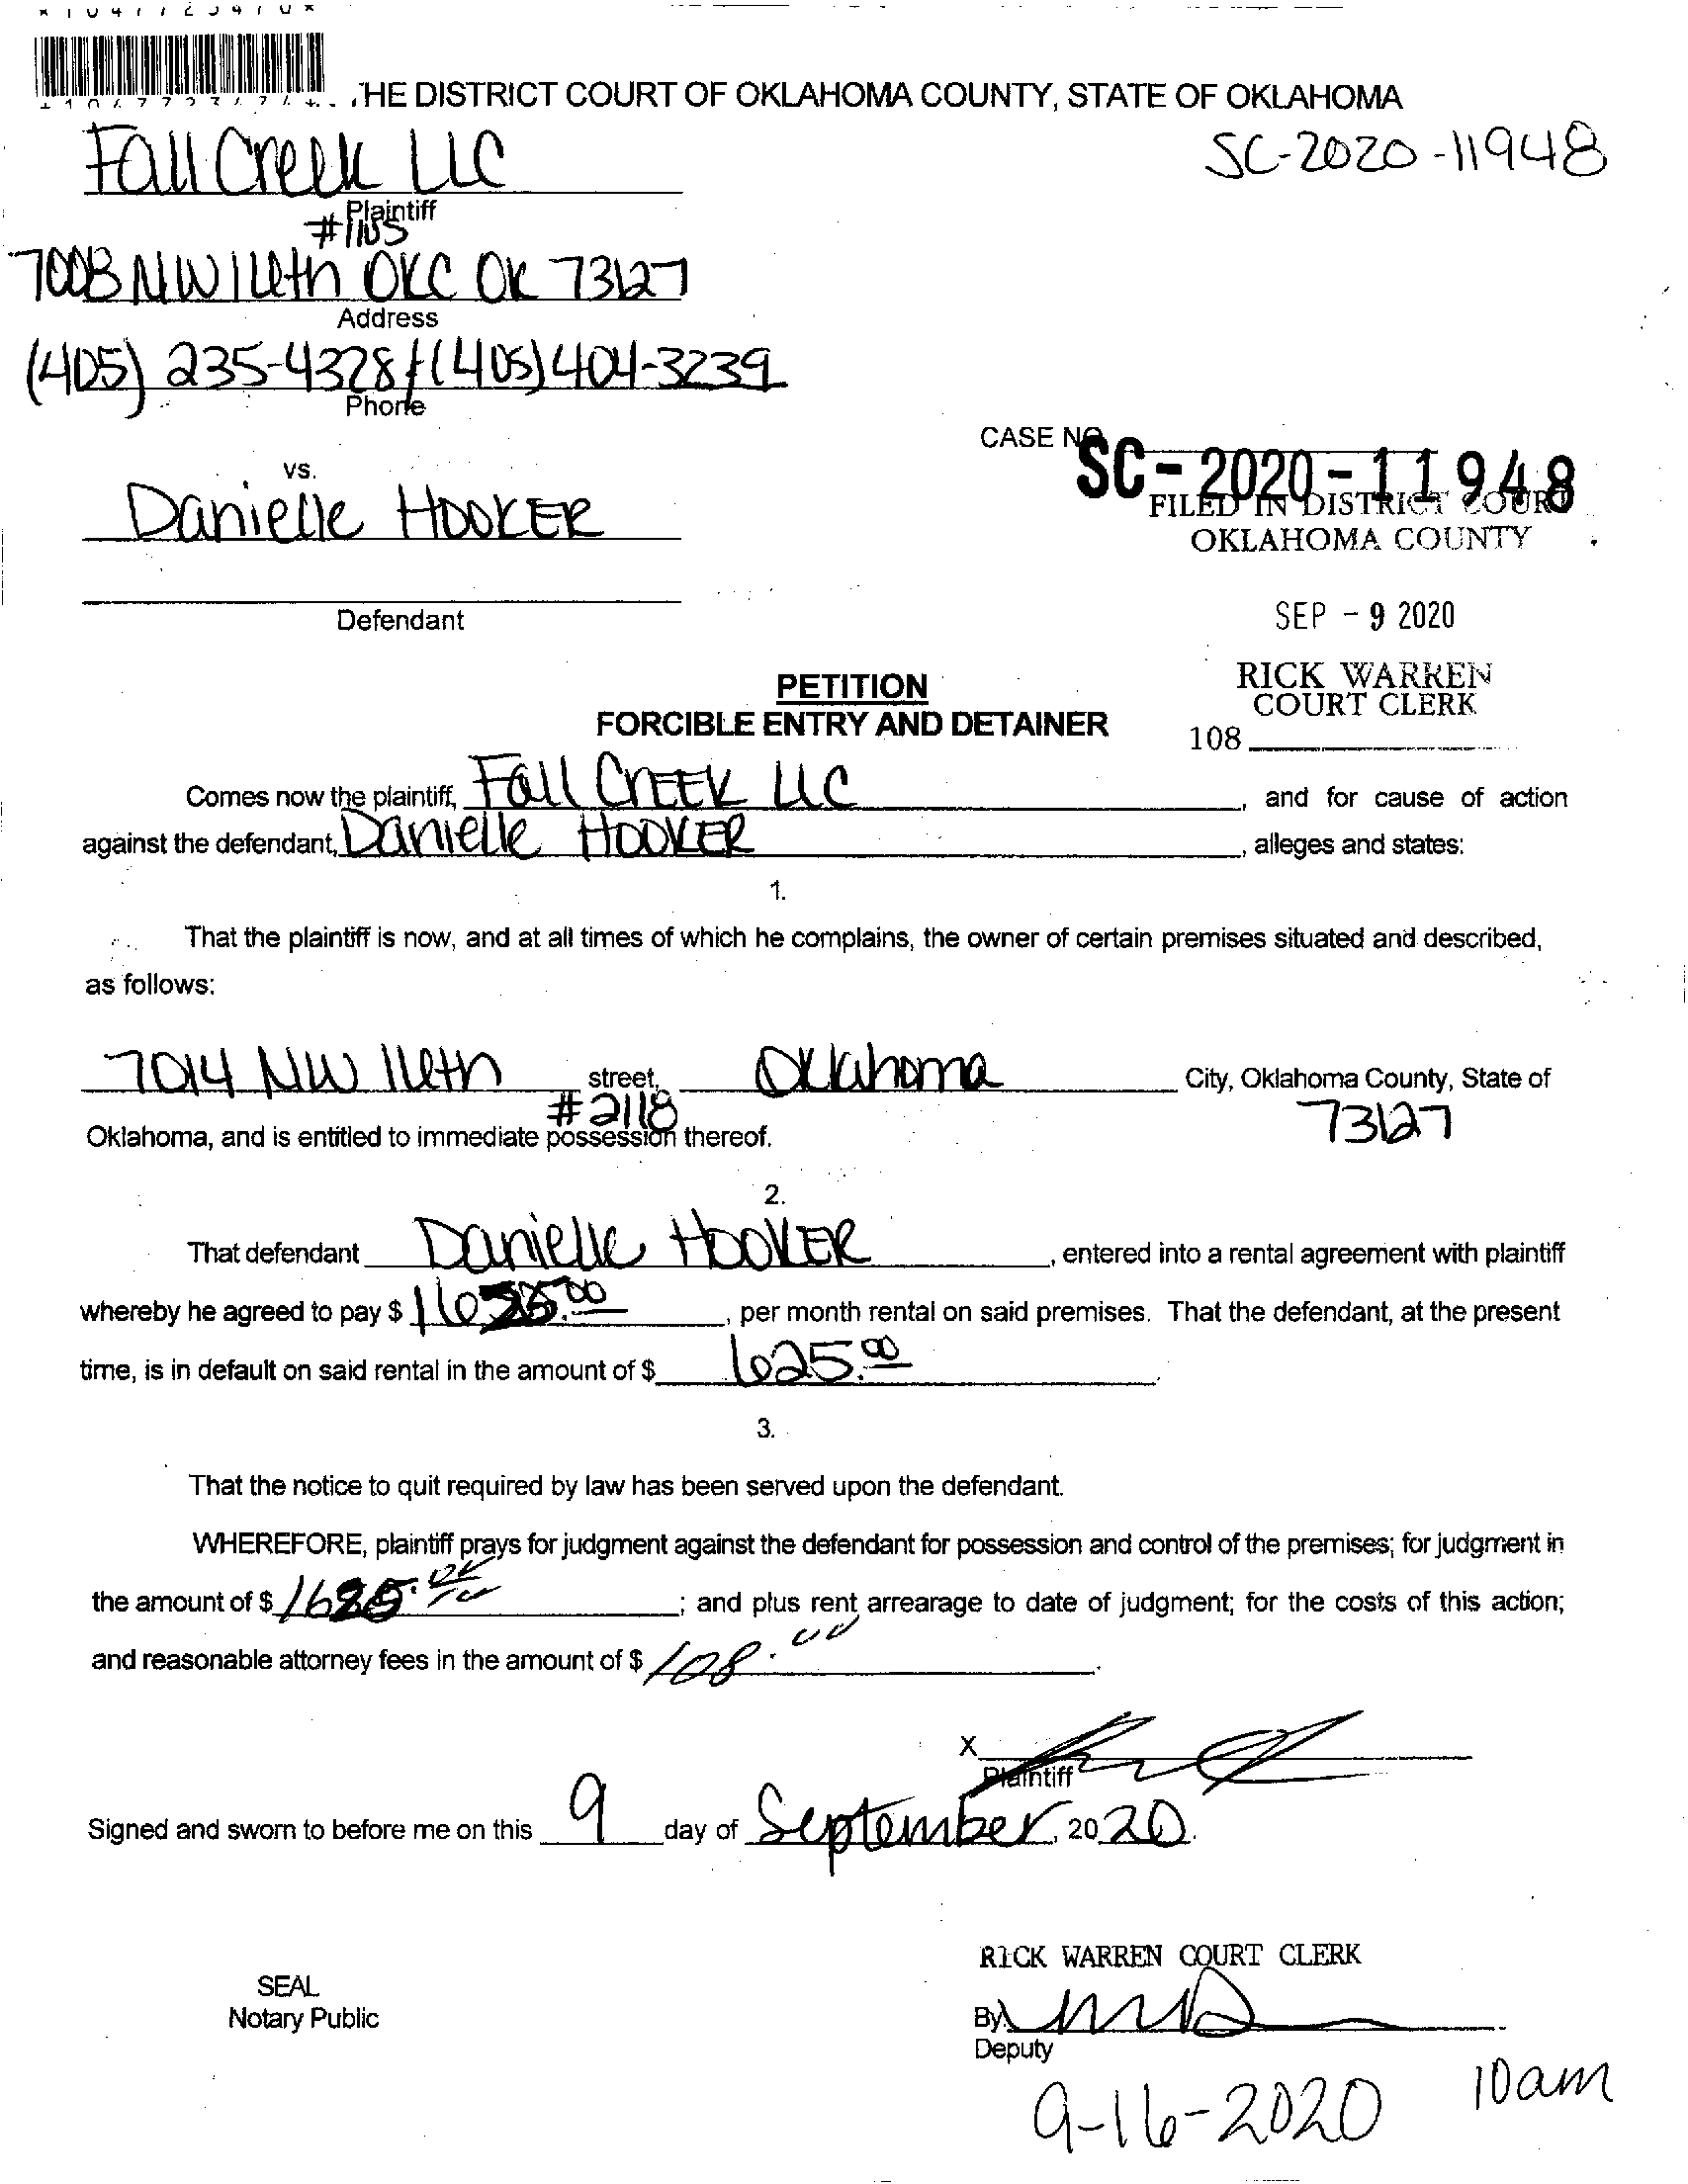 THE DISTRICT COURT OF OKLAHOMA COUNTY, STATE OF OKLAHOMA
Fall Creek LLC
SC-2020-11948
Plaintiff
#1105
7008 NW 16th OKC OK 73127
Address
(405) 235-4328 / (405) 404-3239
Phone
CASE NO.
SC-2020-11948
vs.
FILED IN DISTRICT COURT
Danielle HOOKER
OKLAHOMA COUNTY
Defendant
SEP - 9 2020
PETITION
RICK WARREN
COURT CLERK
FORCIBLE ENTRY AND DETAINER
108
Comes now the plaintiff, Fall CREEK LLC, and for cause of action
against the defendant, Danielle HOOKER, alleges and states:
1.
That the plaintiff is now, and at all times of which he complains, the owner of certain premises situated and described,
as follows:
7014 NW 16th street, Oklahoma City, Oklahoma County, State of
#2118 73127
Oklahoma, and is entitled to immediate possession thereof.
2.
That defendant Danielle HOOKER, entered into a rental agreement with plaintiff
whereby he agreed to pay $ , per month rental on said premises. That the defendant, at the present
time, is in default on said rental in the amount of $ 625.00.
3.
That the notice to quit required by law has been served upon the defendant.
WHEREFORE, plaintiff prays for judgment against the defendant for possession and control of the premises; for judgment in
the amount of $ ; and plus rent arrearage to date of judgment; for the costs of this action;
and reasonable attorney fees in the amount of $ 108.00.
X
Plaintiff
Signed and sworn to before me on this 9 day of September, 2020.
RICK WARREN COURT CLERK
SEAL
Notary Public
By
Deputy
9-16-2020 10am